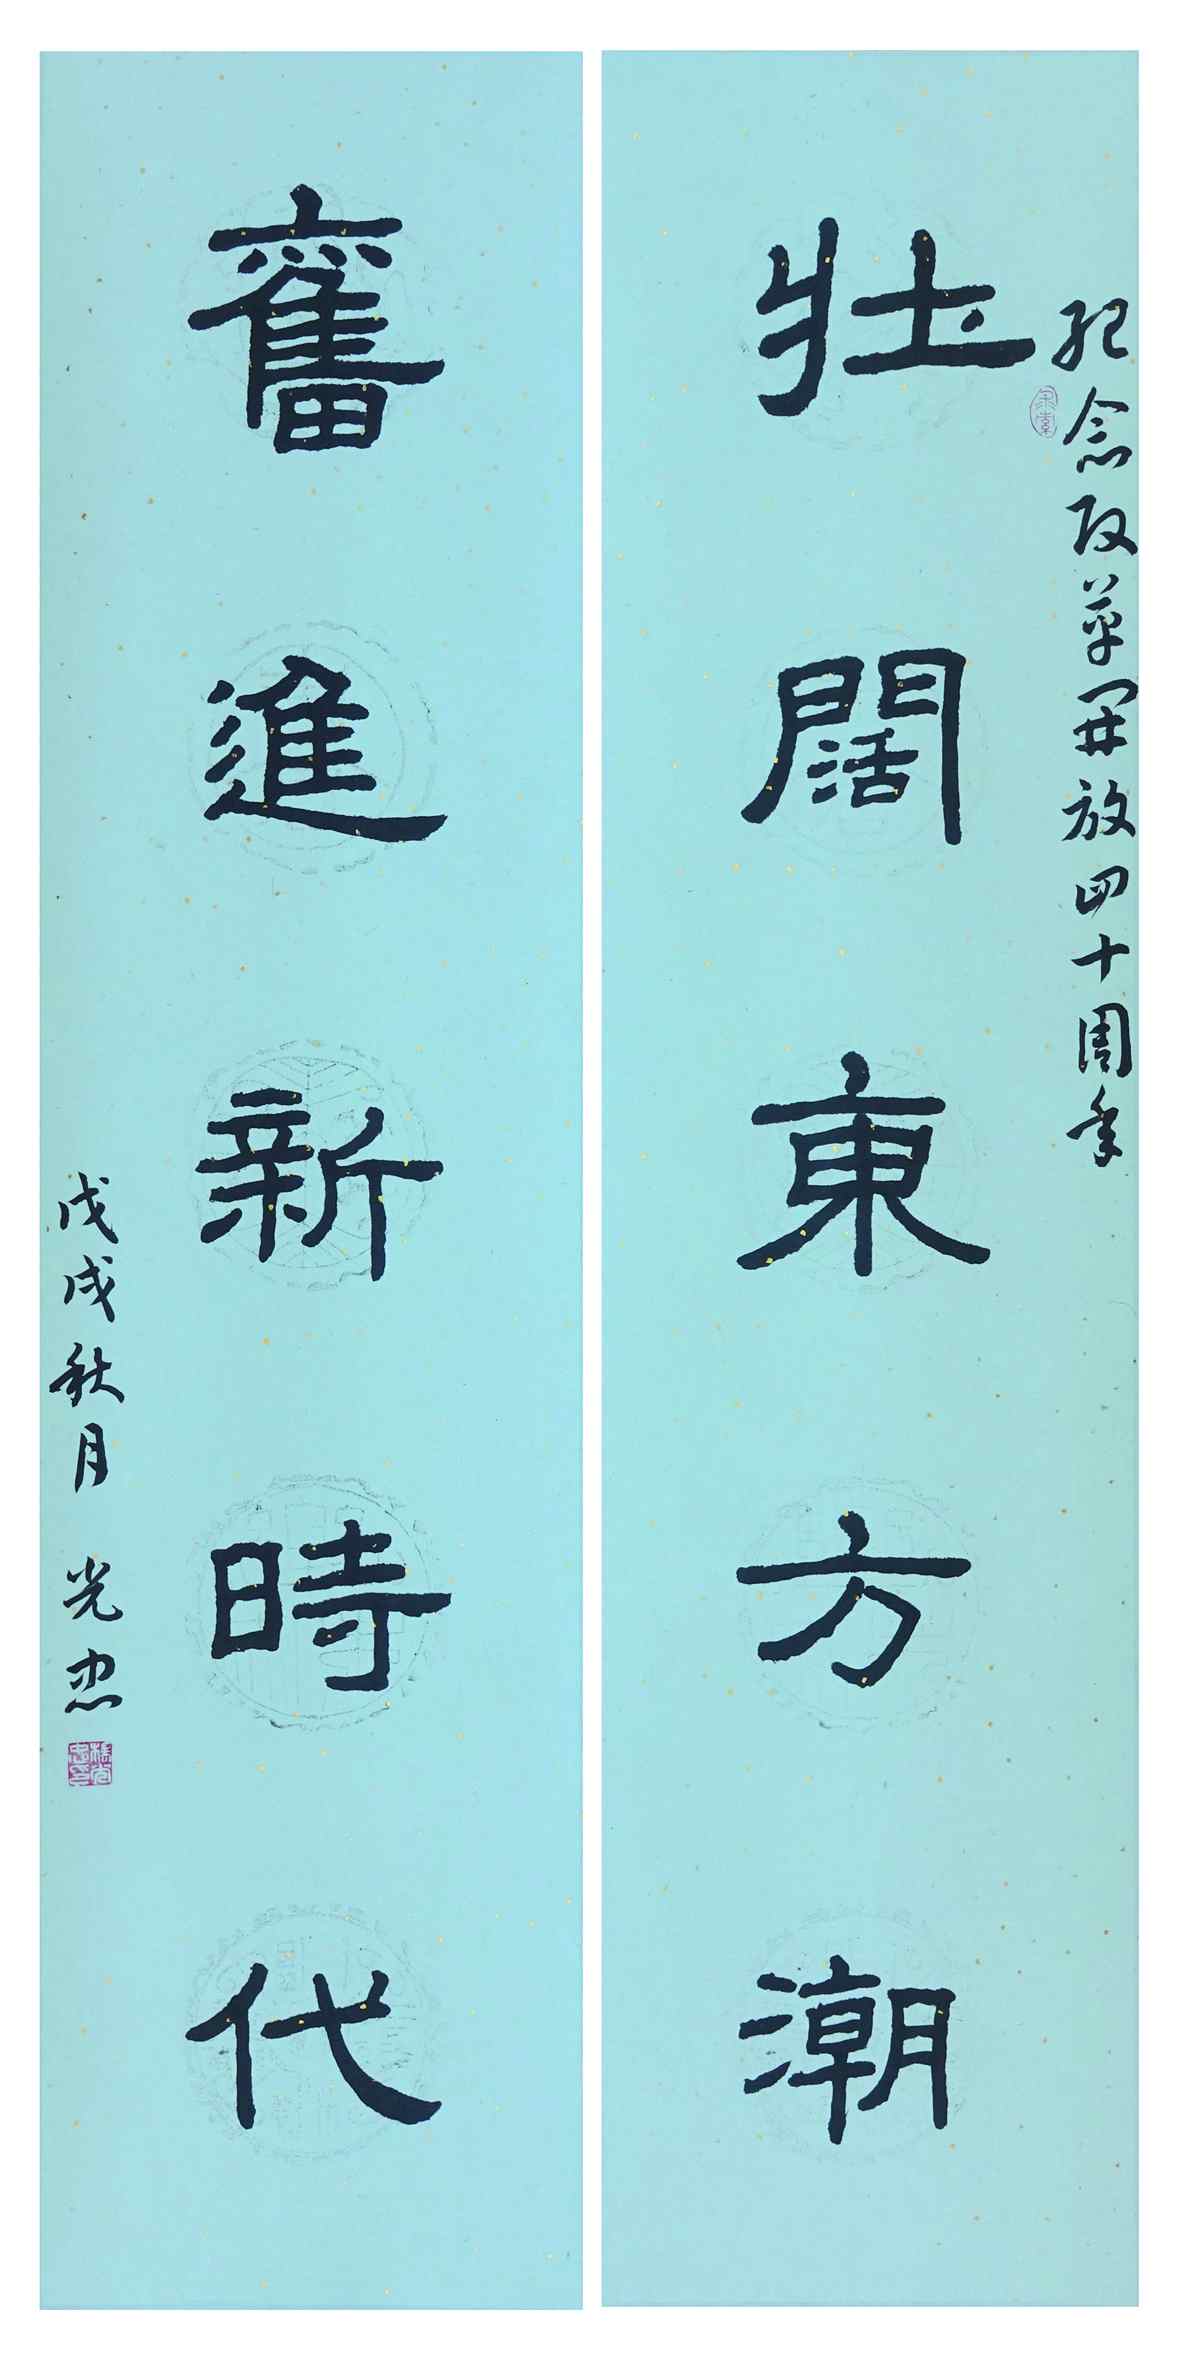 紀念改革開放四十周年
壯闊東方潮
奮進新時代
戊戌秋月 光忠